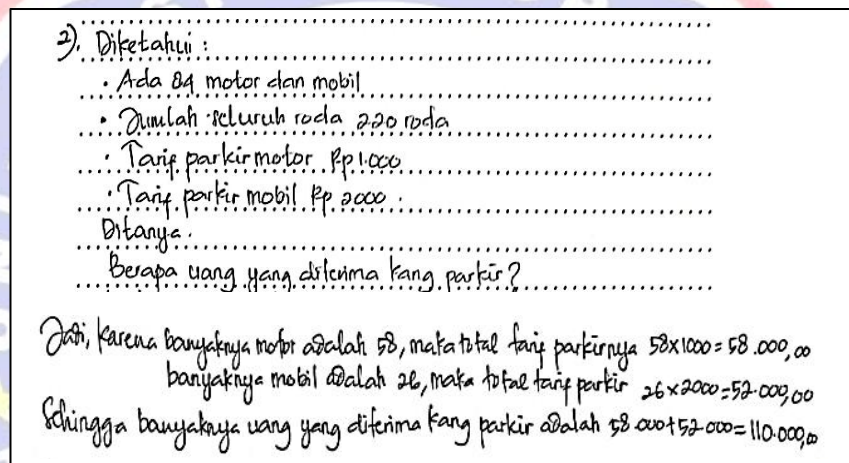 2). Diketahui :
• Ada 84 motor dan mobil
• Jumlah seluruh roda 220 roda
• Tarif parkir motor Rp 1.000
• Tarif parkir mobil Rp 2000
Ditanya.
Berapa uang yang diterima kang parkir?
Jadi, karena banyaknya motor adalah 58, maka total tarif parkirnya 58x1000=58.000,00
banyaknya mobil adalah 26, maka total tarif parkir 26x2000=52.000,00
Sehingga banyaknya uang yang diterima kang parkir adalah 58.000+52.000=110.000,00